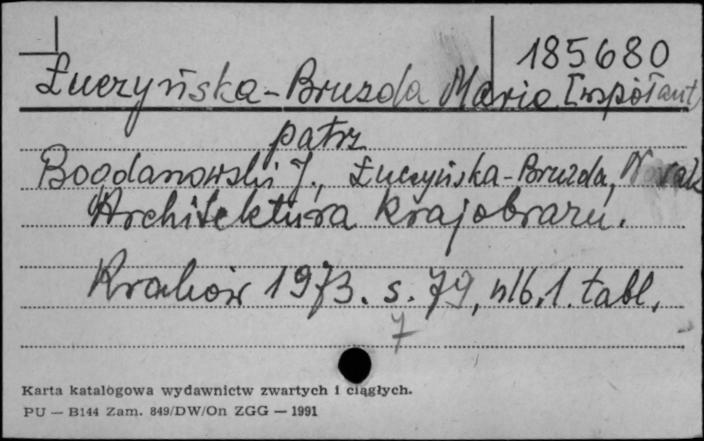 185680
Łuczyńska-Bruzda Maria [współaut
patrz
Bogdanowski J., Łuczyńska-Bruzda, Novák
Architektura krajobrazu.
Kraków 1973. s. 79, nlb. 1. tabl.
7
Karta katalogowa wydawnictw zwartych i ciągłych.
PU — B144 Zam. 849/DW/On ZGG — 1991